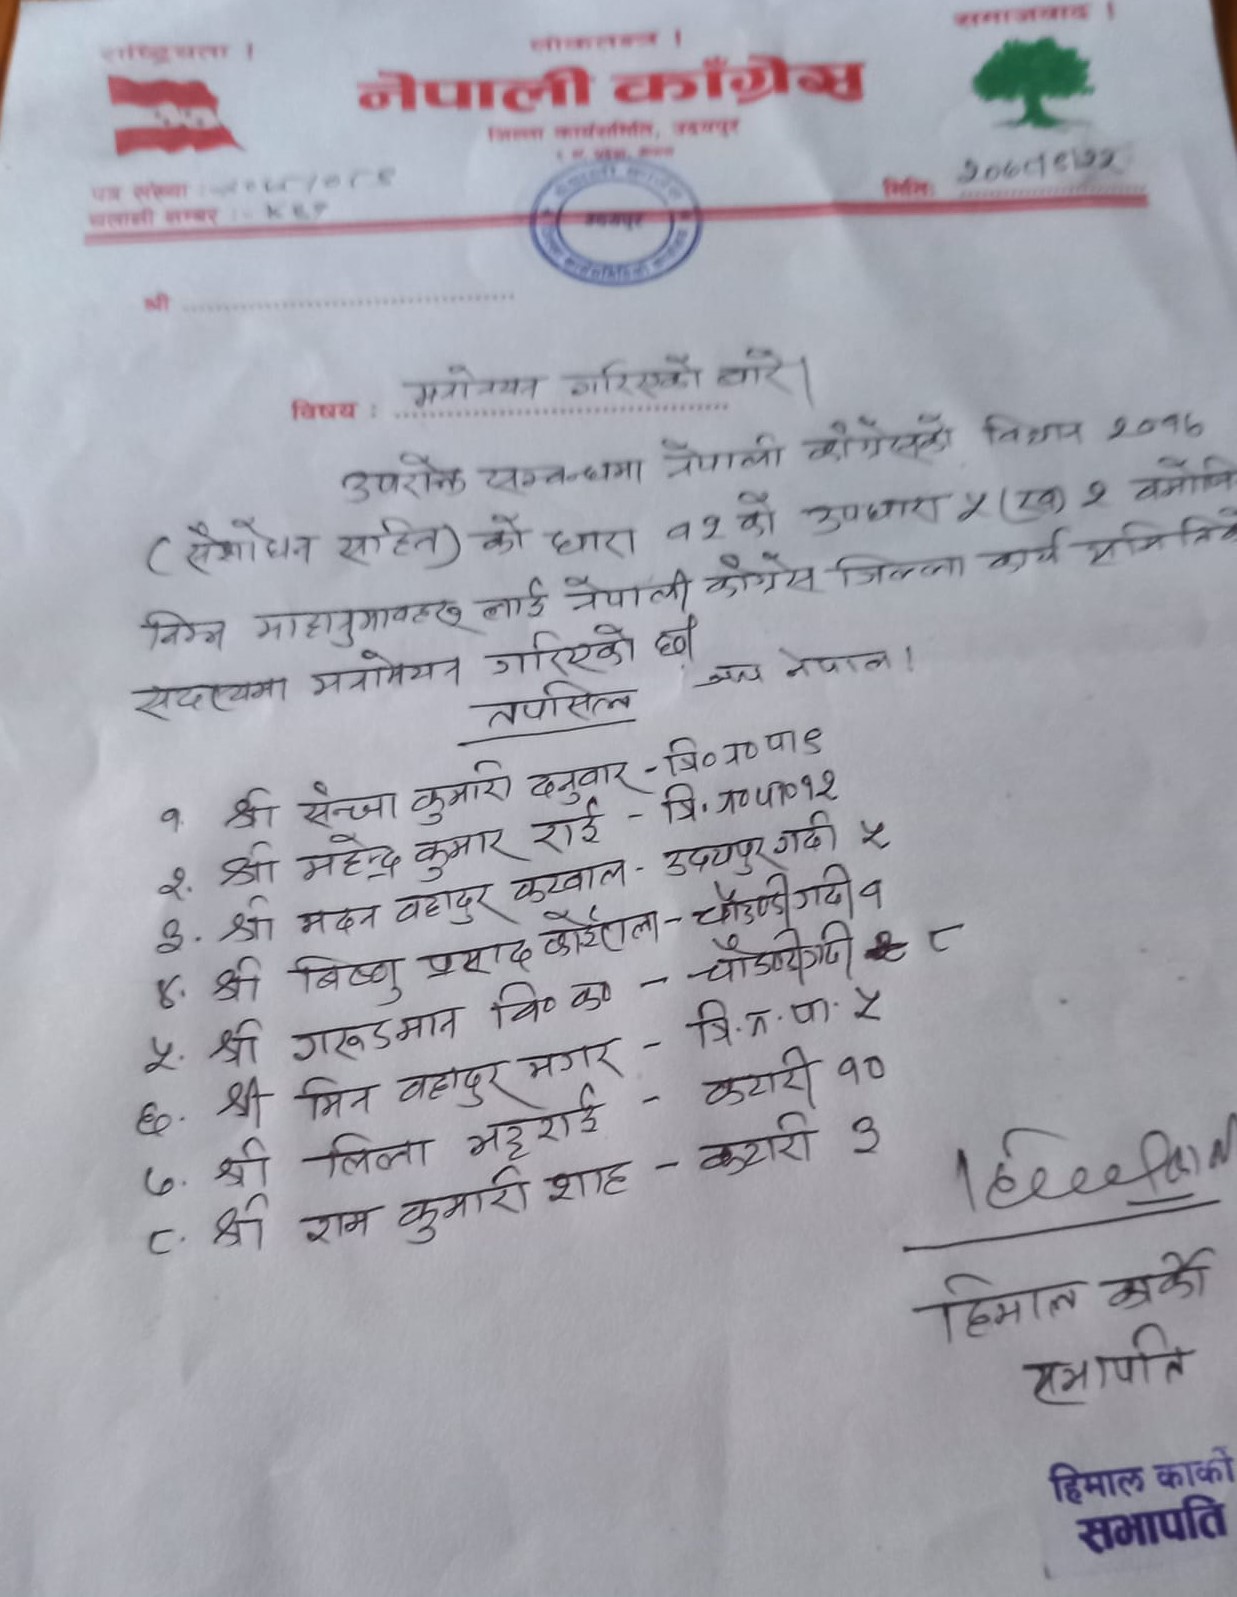 राष्ट्रियता ।
लोकतन्त्र ।
समाजवाद ।
नेपाली काँग्रेस
जिल्ला कार्यसमिति, उदयपुर
पत्र संख्या :-
मिति:
चलानी नम्बर :-
उदयपुर
श्री
विषय : मनोनयन गरिएको बारे।
उपरोक्त सम्बन्धमा नेपाली काँग्रेसको विधान २०१७
(संशोधन सहित) को धारा १२ को उपधारा ५ (ख) २ बमोजि
निम्न माहानुभावहरु लाई नेपाली काँग्रेस जिल्ला कार्य समितिको
सदस्यमा मनोनयन गरिएको छ। जय नेपाल!
तपसिल
१. श्री सन्जा कुमारी दनुवार - त्रि०न०पा ९
२. श्री महेन्द्र कुमार राई - त्रि.न०पा०१२
३. श्री मदन बहादुर कटवाल - उदयपुरगढी ५
४. श्री बिष्णु प्रसाद कोईराला - चौडण्डीगढी १
५. श्री गरूडमान वि०क० - चौडण्डीगढी ८
६. श्री मिन बहादुर मगर - त्रि.न.पा. ५
७. श्री लिला भट्टराई - कटारी १०
८. श्री राम कुमारी शाह - कटारी ३
हिमाल कार्की
सभापति
हिमाल कार्की
सभापति